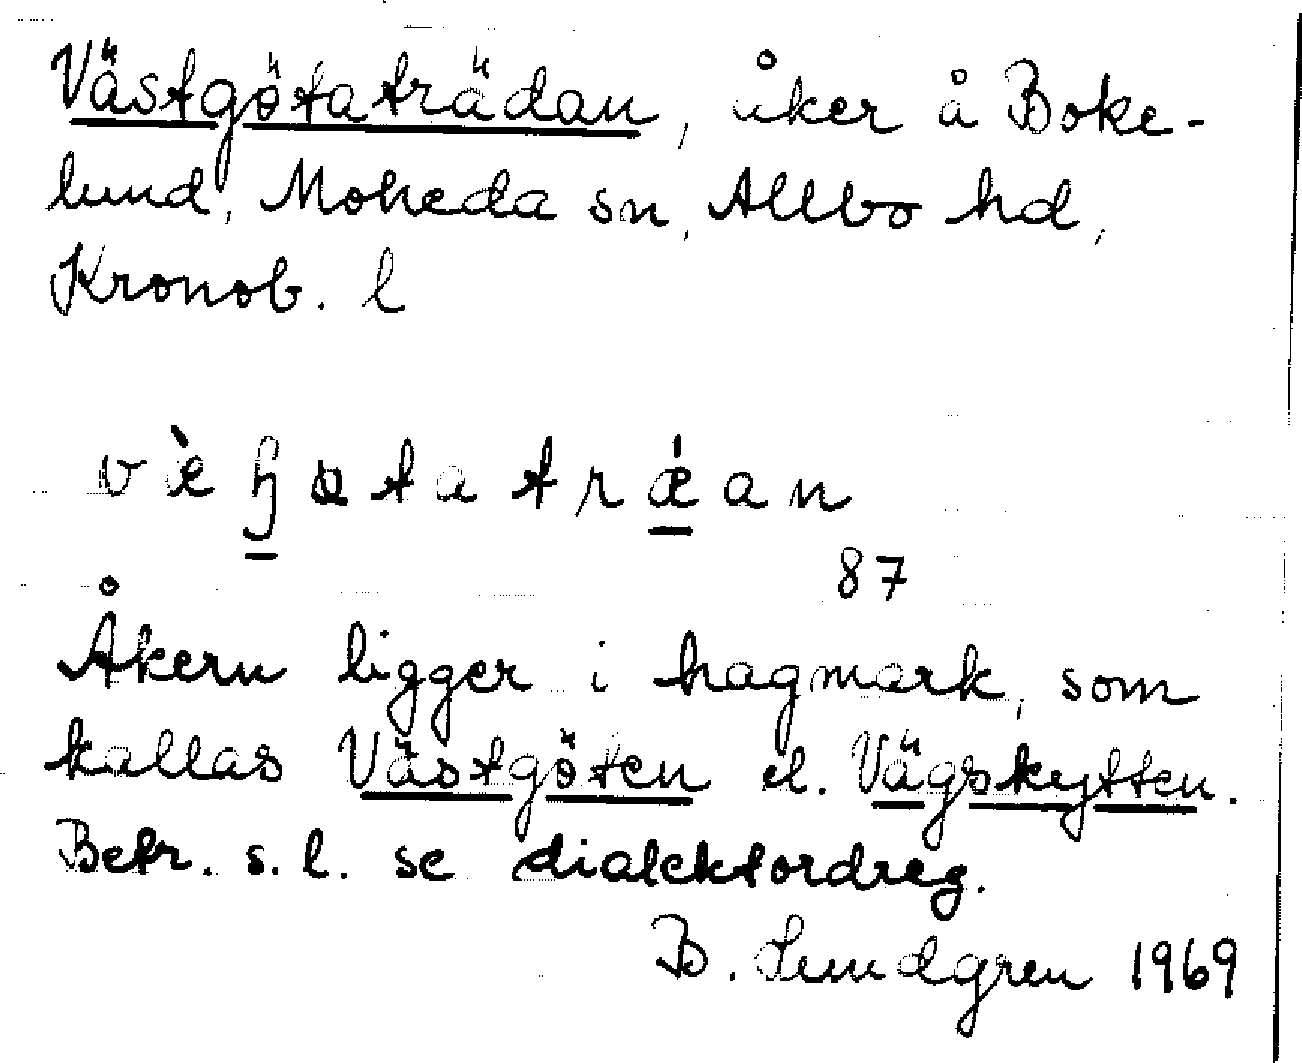 Västgötaträdan, åker å Boke-
lund, Moheda sn, Allbo hd,
Kronob. l
87
Åkern ligger i hagmark, som
kallas Västgöten el. Vägskytten.
Betr. s. l. se dialektordreg.
B. Lundgren 1969